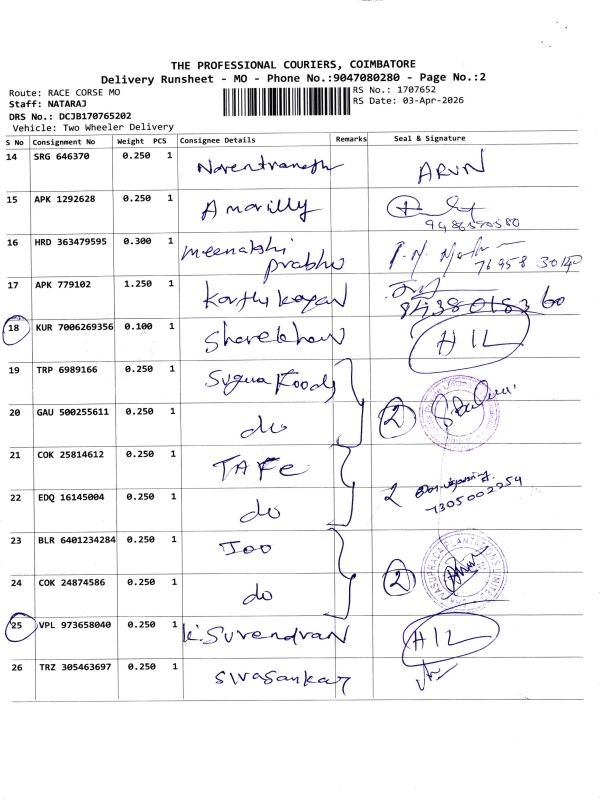 THE PROFESSIONAL COURIERS, COIMBATORE
Delivery Runsheet - MO - Phone No.:9047080280 - Page No.:2
Route: RACE CORSE MO
RS No.: 1707652
Staff: NATARAJ
RS Date: 03-Apr-2026
DRS No.: DCJB170765202
Vehicle: Two Wheeler Delivery
S No Consignment No Weight PCS Consignee Details Remarks Seal & Signature
14 SRG 646370 0.250 1 ARUN
15 APK 1292628 0.250 1 Amorilly
9486590580
16 HRD 363479595 0.300 1 meenakshi
prabhu
76958 30140
17 APK 779102 1.250 1 Karthikeyan
18 KUR 7006269356 0.100 1 Sharekhan HIL
19 TRP 6989166 0.250 1 Foods
20 GAU 500255611 0.250 1 do 2
21 COK 25814612 0.250 1 TAFE
22 EDQ 16145004 0.250 1 do 2
7305002254
23 BLR 6401234284 0.250 1
24 COK 24874586 0.250 1 do 2
25 VPL 973658040 0.250 1 K. Surendran HIL
26 TRZ 305463697 0.250 1 Sivasankar